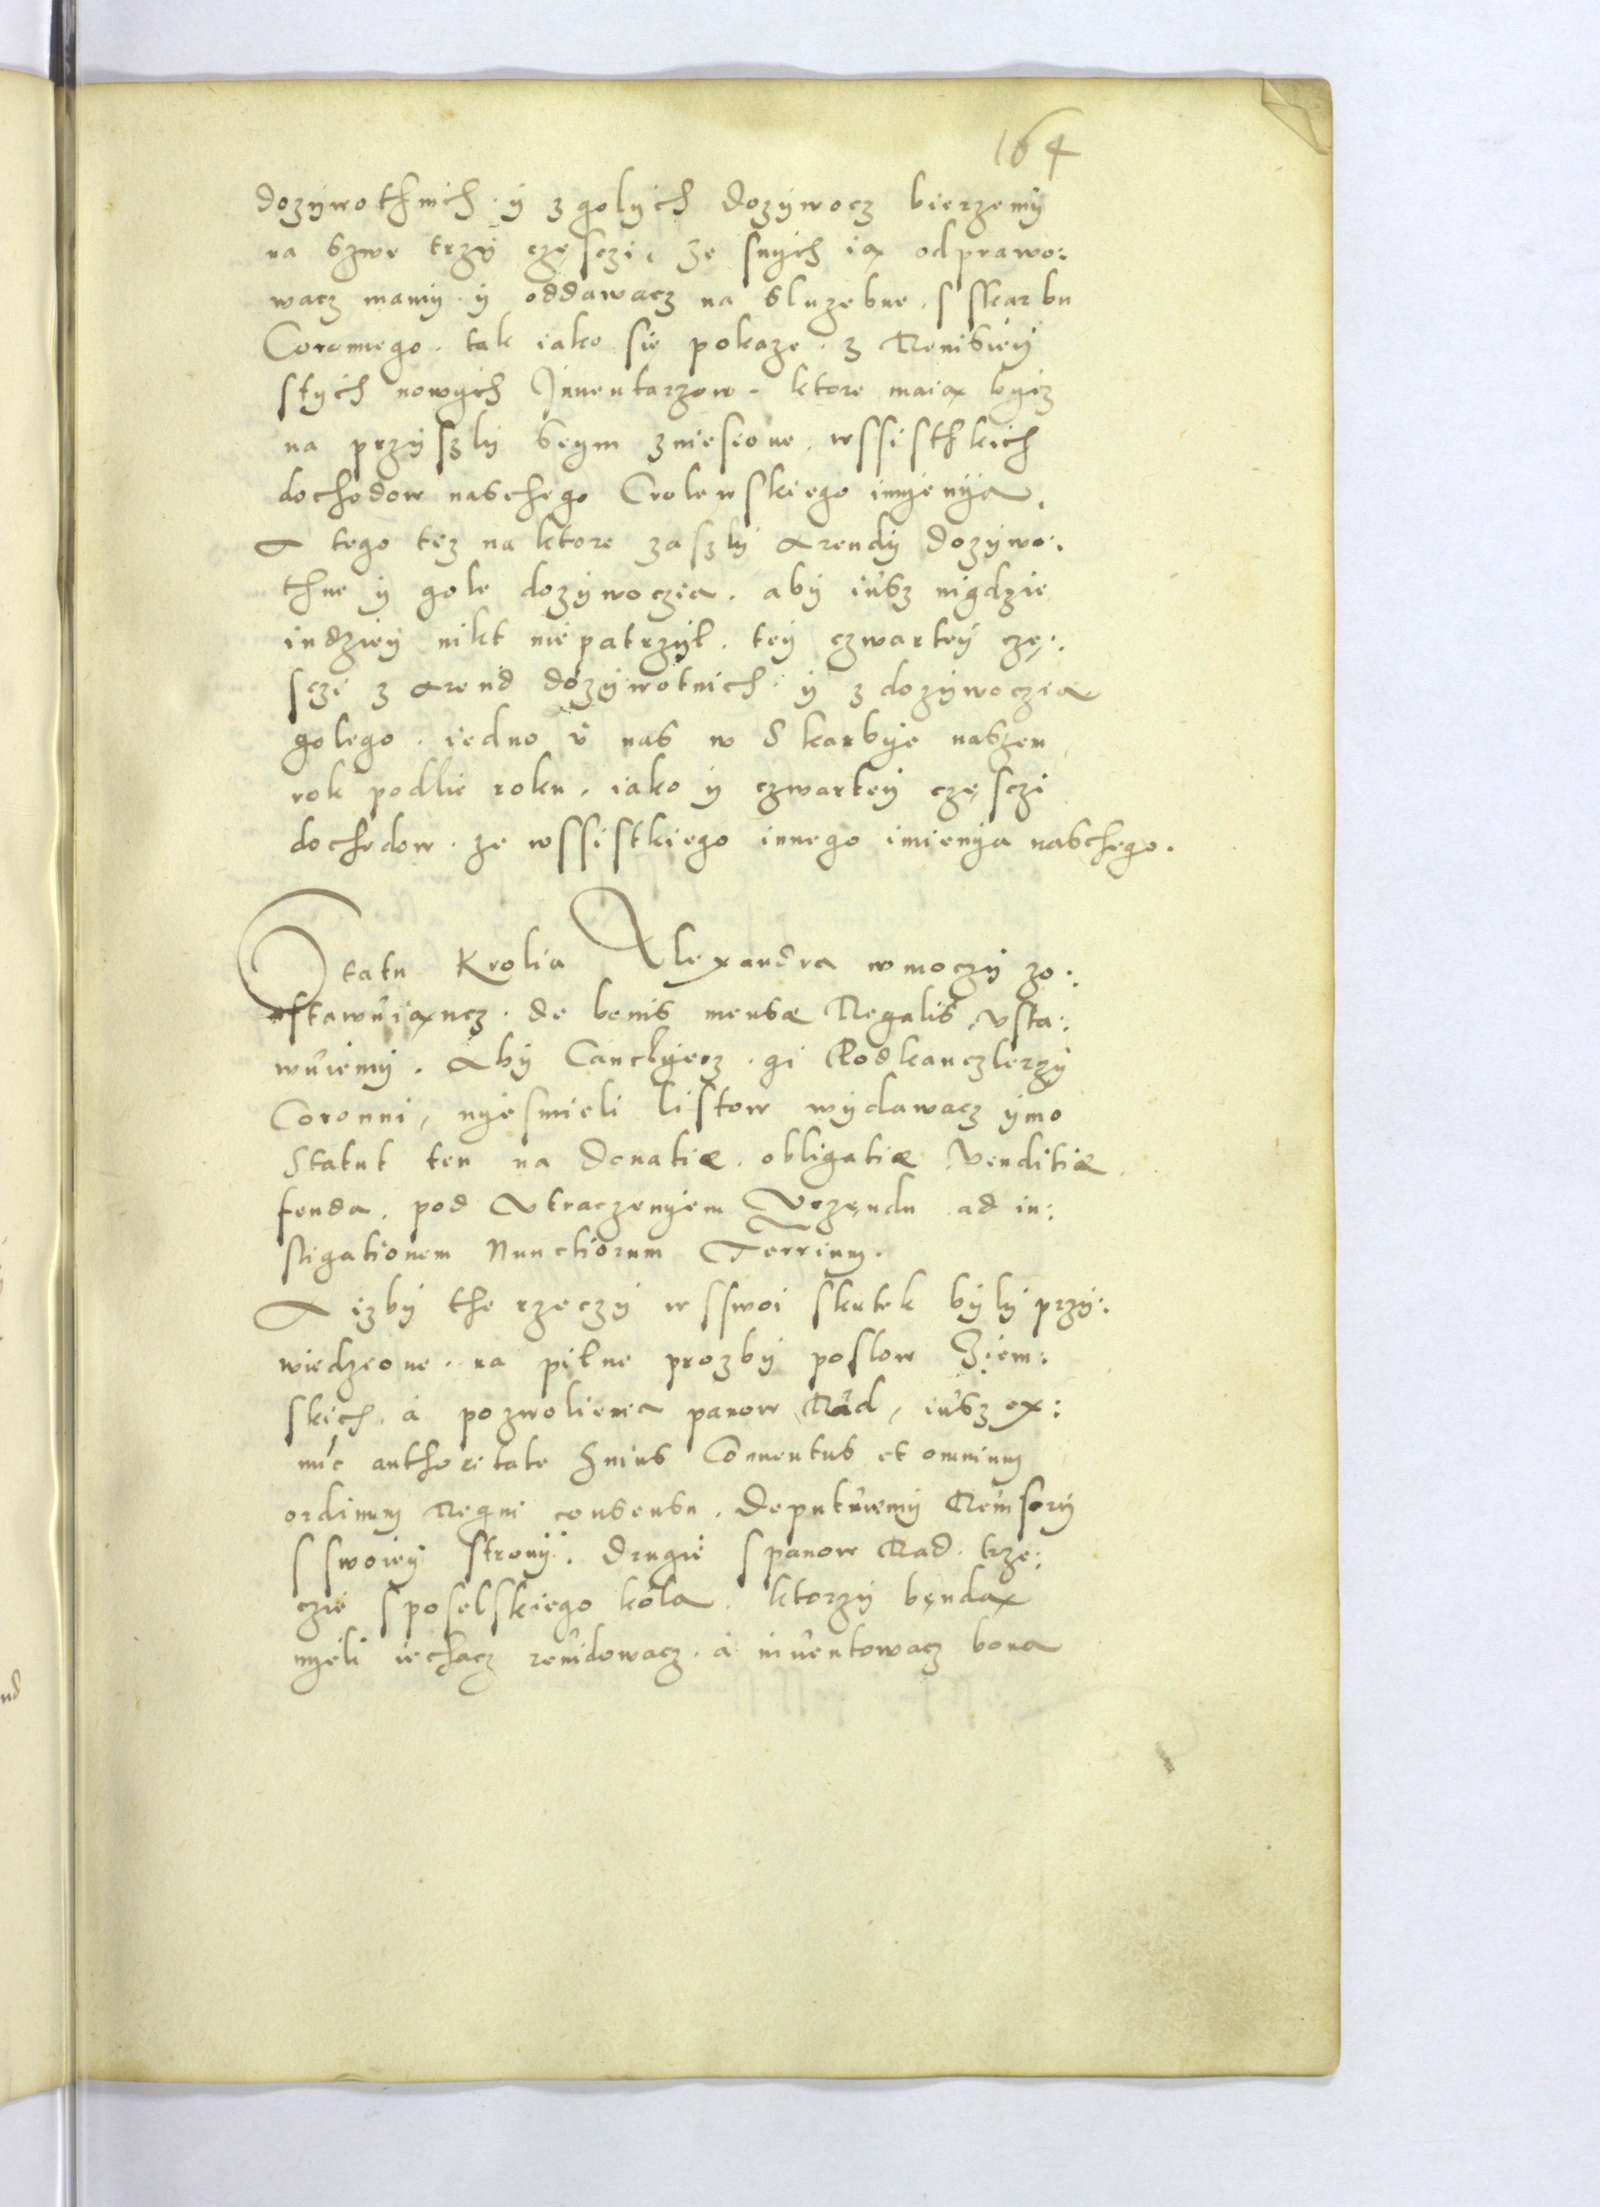 164
dozywothnich · y z golych dozywocz bierzemy
na szwe trzy częsczi, ze snych ią odprawo:
wacz mamy · y oddawacz na sluzebne, s skarbu
Coronnego · tak iako sie pokaze · z Revisiey
stych nowych Jnuentarzow · ktore maią bycz
na przyszly seym zniesione, wssisthkich
dochodow naschego Crolewskiego imyenya,
A tego tez na ktore zaszly Arendy dozywo:
thne y gole dozywoczia, aby iusz nigdzie
indziey nikt nie patrzyl, tey czwartey czę:
sczi z Arend dozywotnich · y z dozywoczia
golego · iedno u nas w Skarbye naszem
rok podlie roku, iako y czwartey częsczi
dochodow · ze wssistkiego innego imienya naschego.
Statu Krolia Alexandra w moczy zo:
stawuiąncz · de bonis mensæ Regalis, Vsta:
wuiemy · Aby Canclyerz · gi Podkanczlerzy
Coronni, nyesmieli listow wydawacz ymo
Statut ten na donatiæ, obligatiæ Venditiæ
feuda, pod Vtraczenyem Vrzędu ad in:
stigationem Nunctiorum Terrium.
A izby the rzeczy w sswoi skutek byly przy:
wiedzione · na pilne prozby poslow Ziem:
skich, á pozwolienia panow Rad, iusz ex:
nuc authoritate huius Conuentus et omnium
ordinum Regni consensu, deputuiemy Reuisory
s swoiey strony, drugie s panow Rad, trze:
czie s poselskiego kola, ktorzy bęndą
myeli iechacz reuidowacz · á inuentowacz bona